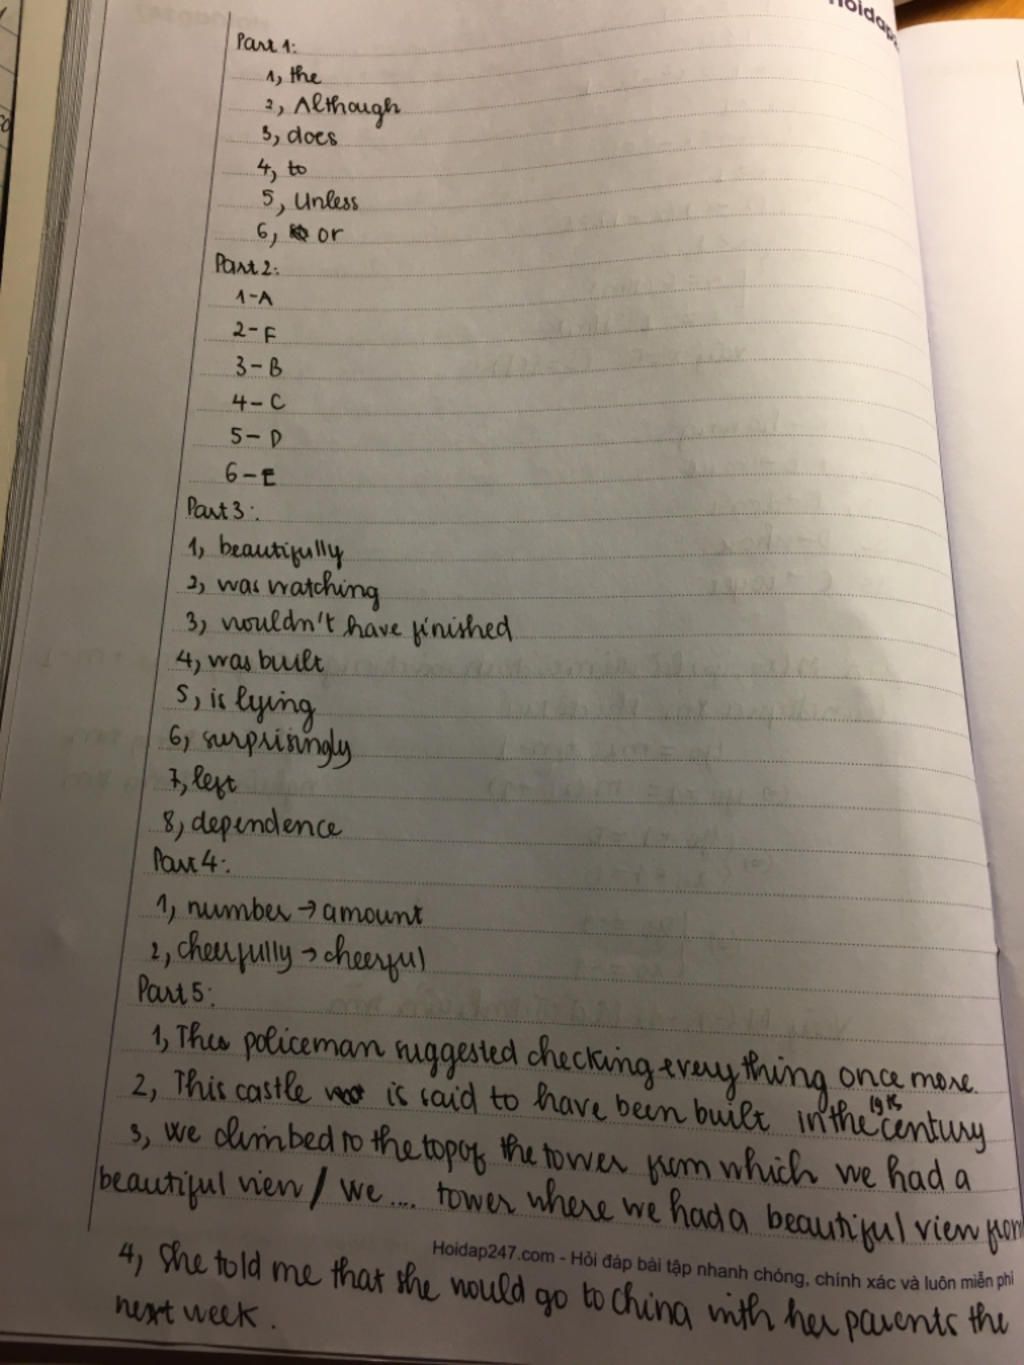 Hoidap
Part 1:
1, the
2, Although
3, does
4, to
5, Unless
6, or
Part 2:
1-A
2-F
3-B
4-C
5-D
6-E
Part 3:
1, beautifully
2, was watching
3, wouldn't have finished
4, was built
5, is lying
6, surprisingly
7, left
8, dependence
Part 4:
1, number → amount
2, cheerfully → cheerful
Part 5:
1, The policeman suggested checking everything once more.
2, This castle is said to have been built in the 19th century
3, We climbed to the top of the tower from which we had a
beautiful view / We .... tower where we had a beautiful view from
Hoidap247.com - Hỏi đáp bài tập nhanh chóng, chính xác và luôn miễn phí
4, She told me that she would go to China with her parents the
next week.